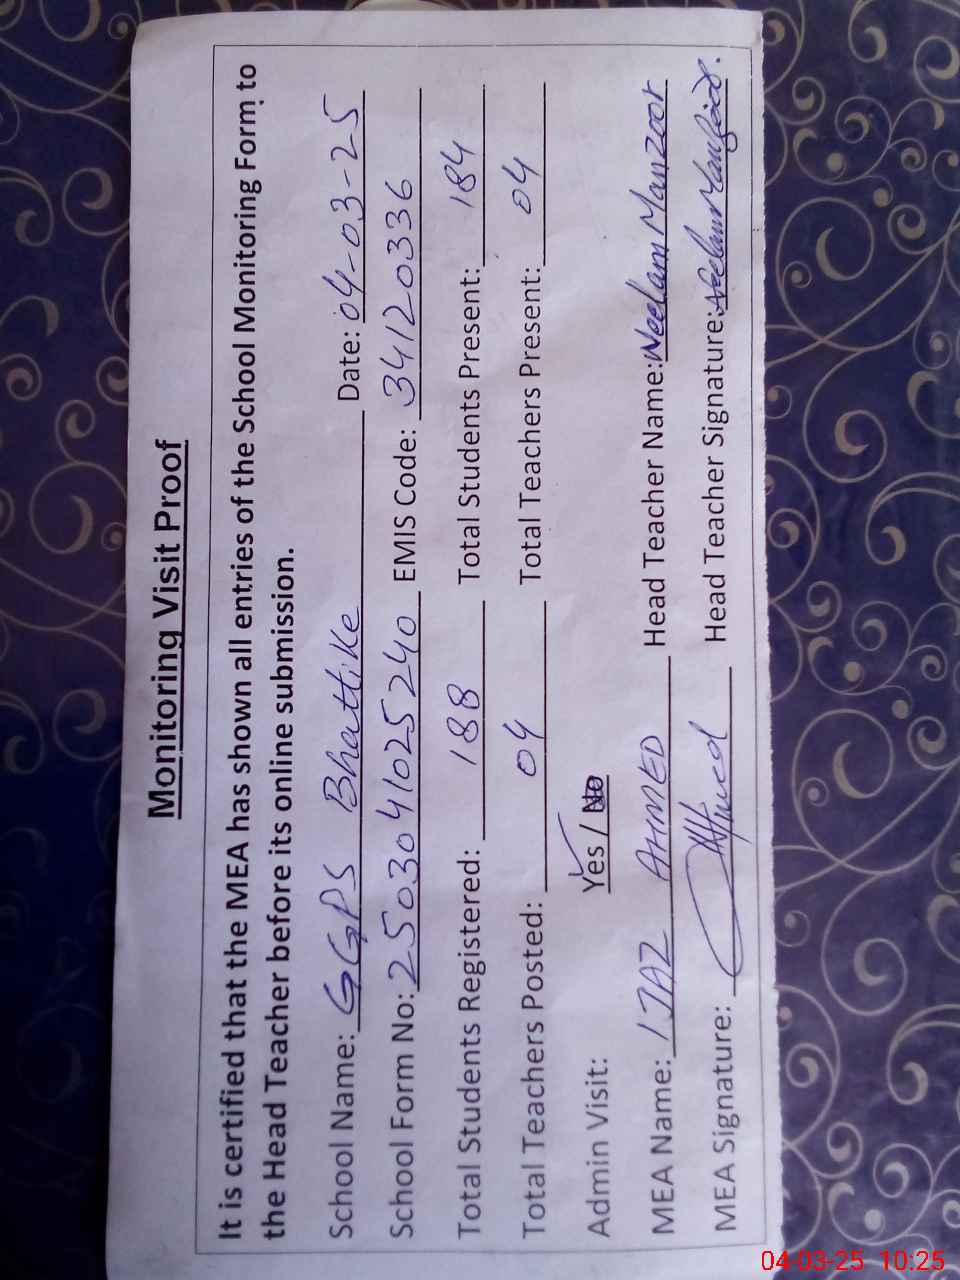 Monitoring Visit Proof
It is certified that the MEA has shown all entries of the School Monitoring Form to
the Head Teacher before its online submission.
School Name: GGPS Bhattike Date: 04-03-25
School Form No: 2503041025240 EMIS Code: 34120336
Total Students Registered: 188 Total Students Present: 184
Total Teachers Posted: 04 Total Teachers Present: 04
Admin Visit: Yes / No
MEA Name: IJAZ AHMED Head Teacher Name: Neelam Manzoor
MEA Signature: Head Teacher Signature: Neelam Manzoor.
04-03-25 10:25